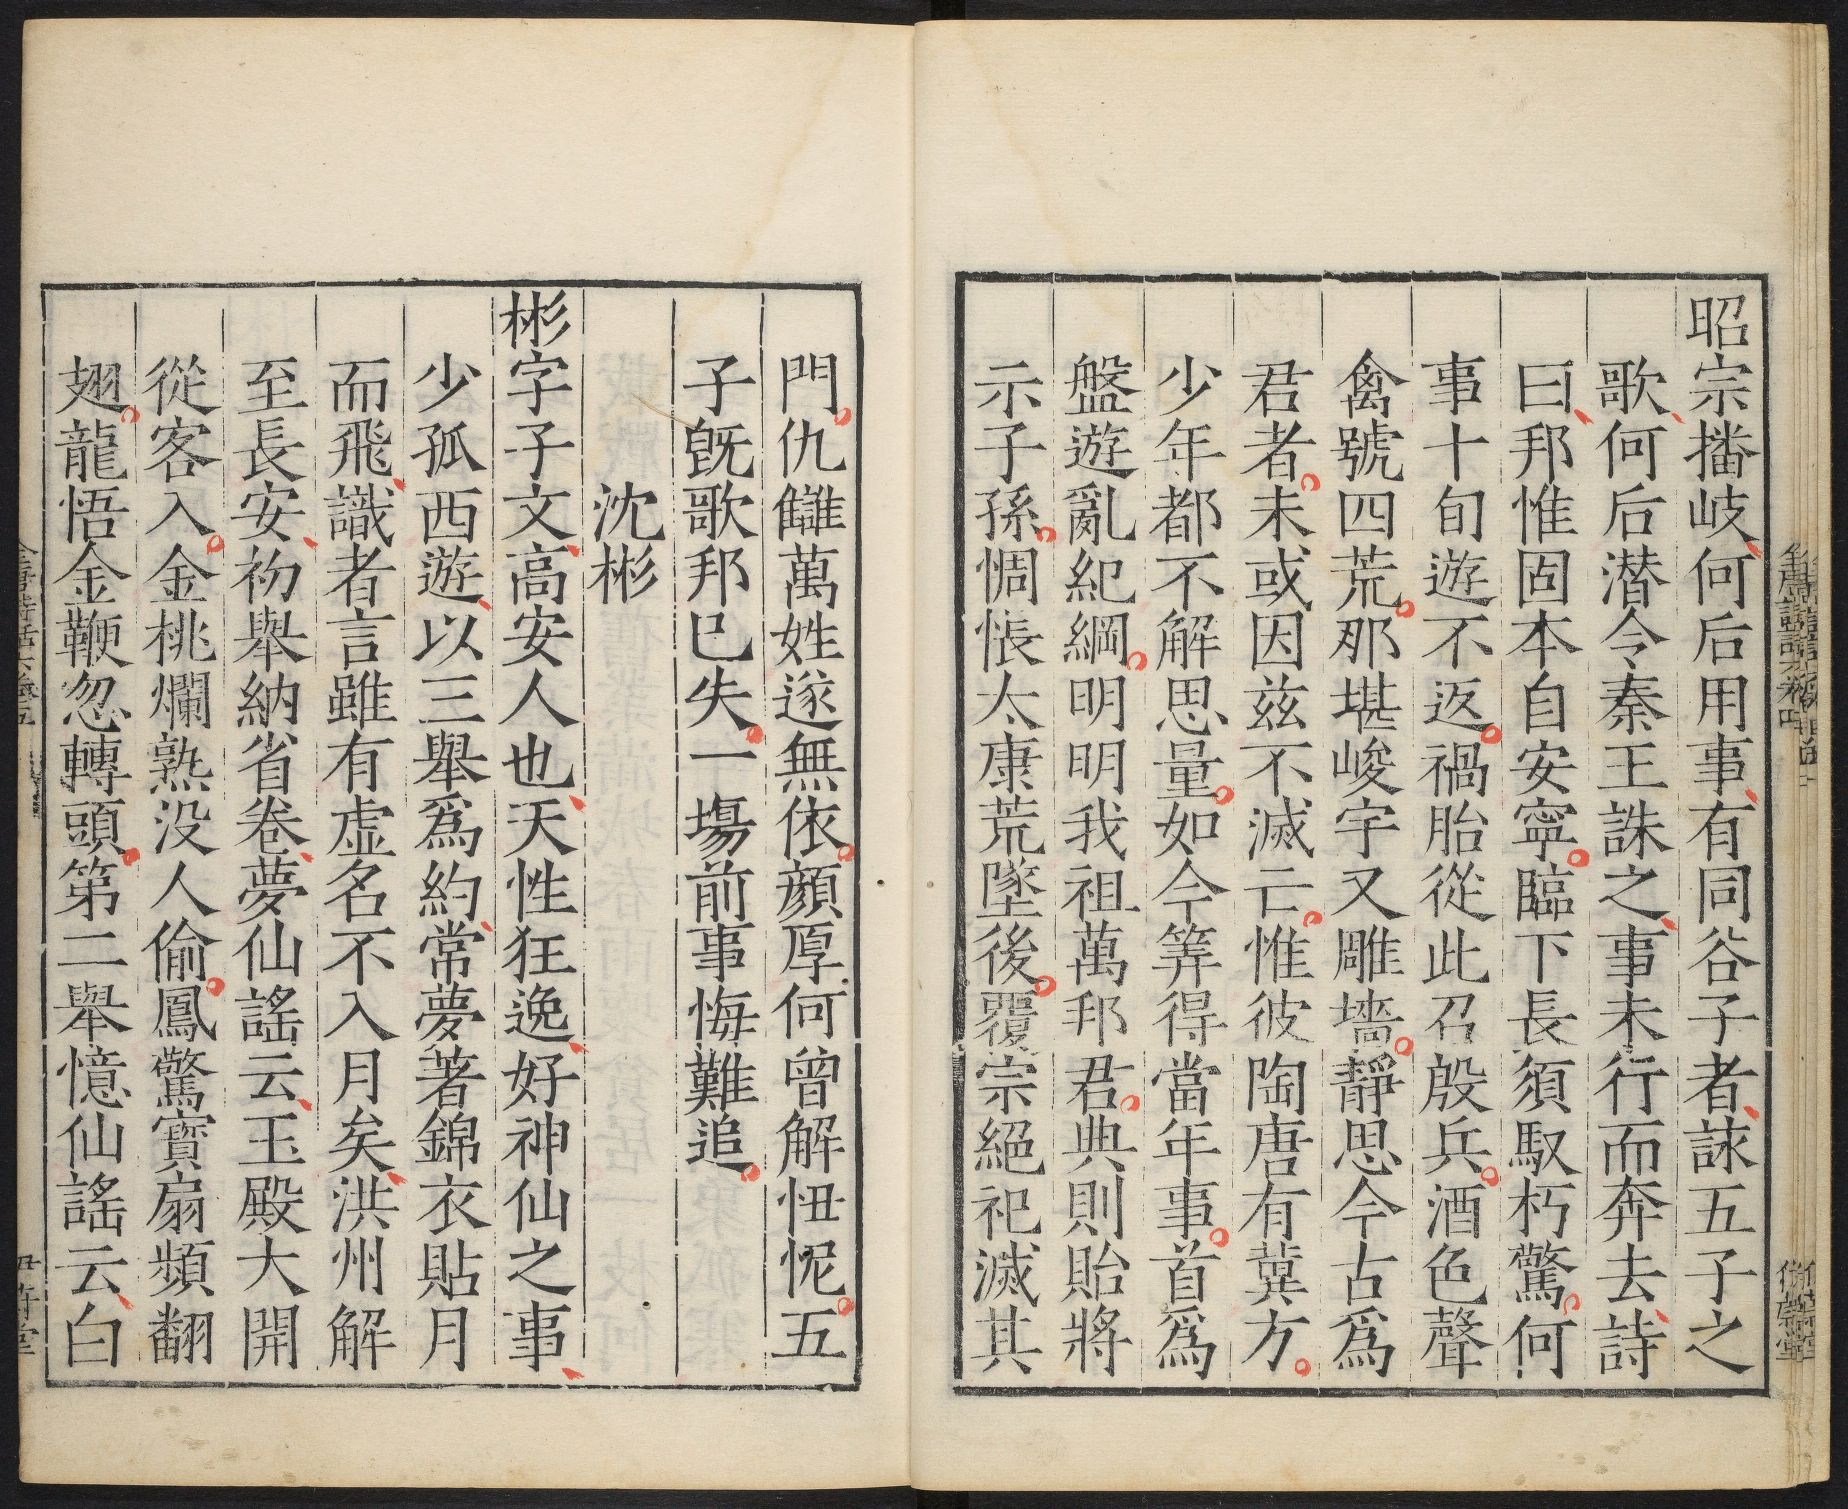 昭宗播岐何后用事有同谷子者詠五子之
歌何后潜令秦王誅之事未行而奔去詩
曰邦惟固本自安寧臨下長須馭朽驚何
事十旬遊不返禍胎從此召殷兵酒色聲
禽號四荒那堪峻宇又雕墻靜思今古爲
君者未或因兹不滅亡惟彼陶唐有冀方
少年都不解思量如今筭得當年事首爲
盤遊亂紀綱明明我祖萬邦君典則貽將
示子孫惆悵太康荒墜後覆宗絕祀滅其
門仇讎萬姓遂無依顔厚何曾解忸怩五
子旣歌邦已失一場前事悔難追
沈彬
彬字子文高安人也天性狂逸好神仙之事
少孤西遊以三舉爲約常夢著錦衣貼月
而飛識者言雖有虛名不入月矣洪州解
至長安初舉納省卷夢仙謠云玉殿大開
從客入金桃爛熟没人偷鳳驚寳扇頻翻
翅龍悟金鞭忽轉頭第二舉憶仙謠云白